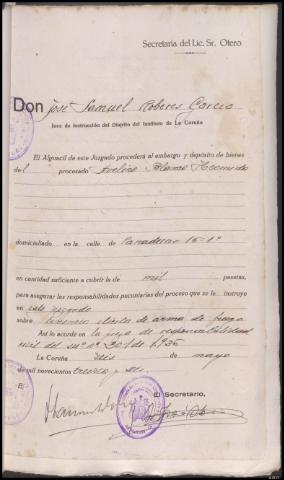 Secretaría del Lic. Sr. Otero
Don José Samuel Roberes García
Juez de instrucción del Distrito del Instituto de La Coruña
El Alguacil de este Juzgado procederá al embargo y depósito de bienes
del procesado Avelino
domiciliado en la calle de Panaderas 15-1º
en cantidad suficiente a cubrir la de mil pesetas,
para asegurar las responsabilidades pecuniarias del proceso que se instruye
en este Juzgado
sobre tenencia ilícita de arma de fuego
Así lo acordo en la pieza de responsabilidad
civil del sumº nº 201 de 1936
La Coruña seis de mayo
de mil novecientos treinta y seis.
El Secretario,